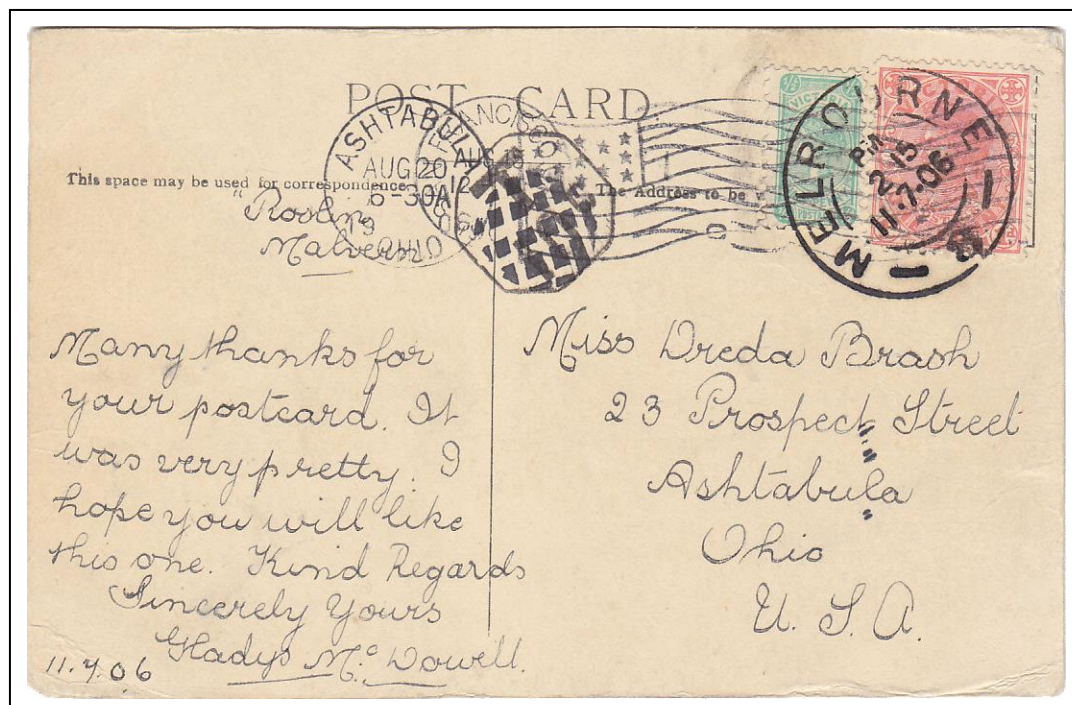 POST CARD
This space may be used for correspondence
The Address to be
ASHTABULA
AUG 20
6-30A
19
OHIO
AUG 18
MELBOURNE
PM
2 15
11.7.06
VICTORIA
"Roslin"
Malvern
Many thanks for
your postcard. It
was very pretty. I
hope you will like
this one. Kind Regards
Sincerely Yours
Gladys Mc Dowell.
11.7.06
Miss Dreda Brash
23 Prospect Street
Ashtabula
Ohio
U. S. A.